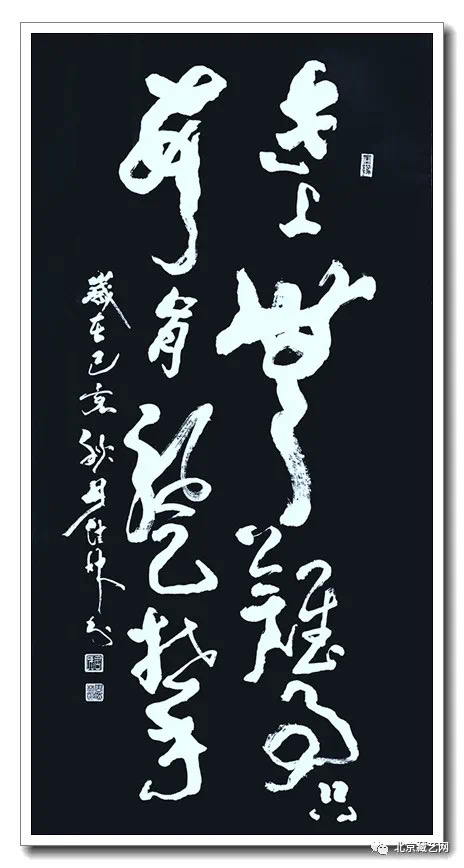 世上無難事只
要肯登攀
歲在己亥秋月書
北京藏艺网